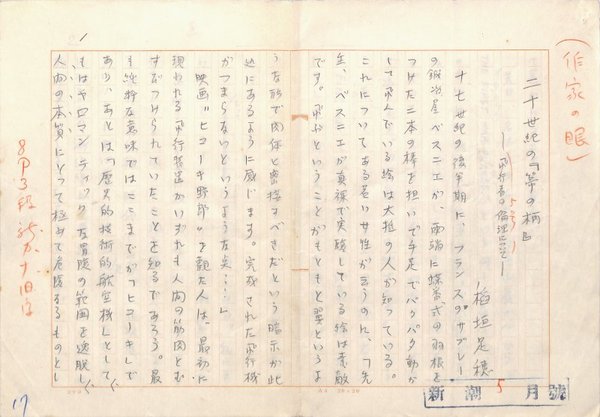 （作家の眼）
二十世紀の『箒の柄』
―飛行者の倫理について―
稲垣足穂
十七世紀の後半期に、フランスのサブレー
の鍛冶屋ベスニエが、両端に蝶番式の羽根を
つけた二本の棒を担いで手足でバタバタ動か
して飛んでいる絵は大抵の人が知っている。
これについてある若い女性が云うのに、「先
生、ベスニエが真裸で実験している絵は素敵
です。飛ぶということがもともと翼というよ
うな形で肉体と密接すべきだという暗示が此
込にあるように感じます。完成された飛行機
がつまらないというような矣……」
映画"ヒコーキ野郎"を観た人は、最初に
現われる飛行装置がいずれも人間の筋肉とむ
すびつけられていたことを知るであろう。最
も純粋な意味ではここまでが「ヒコーキ」で
あり、あとは「歴史的技術的航空機」として
もはやロマンティックな冒険の範囲を逸脱し、
人間の本質にとって極めて危険するものとし
8P3段
新潮 5 月號
17